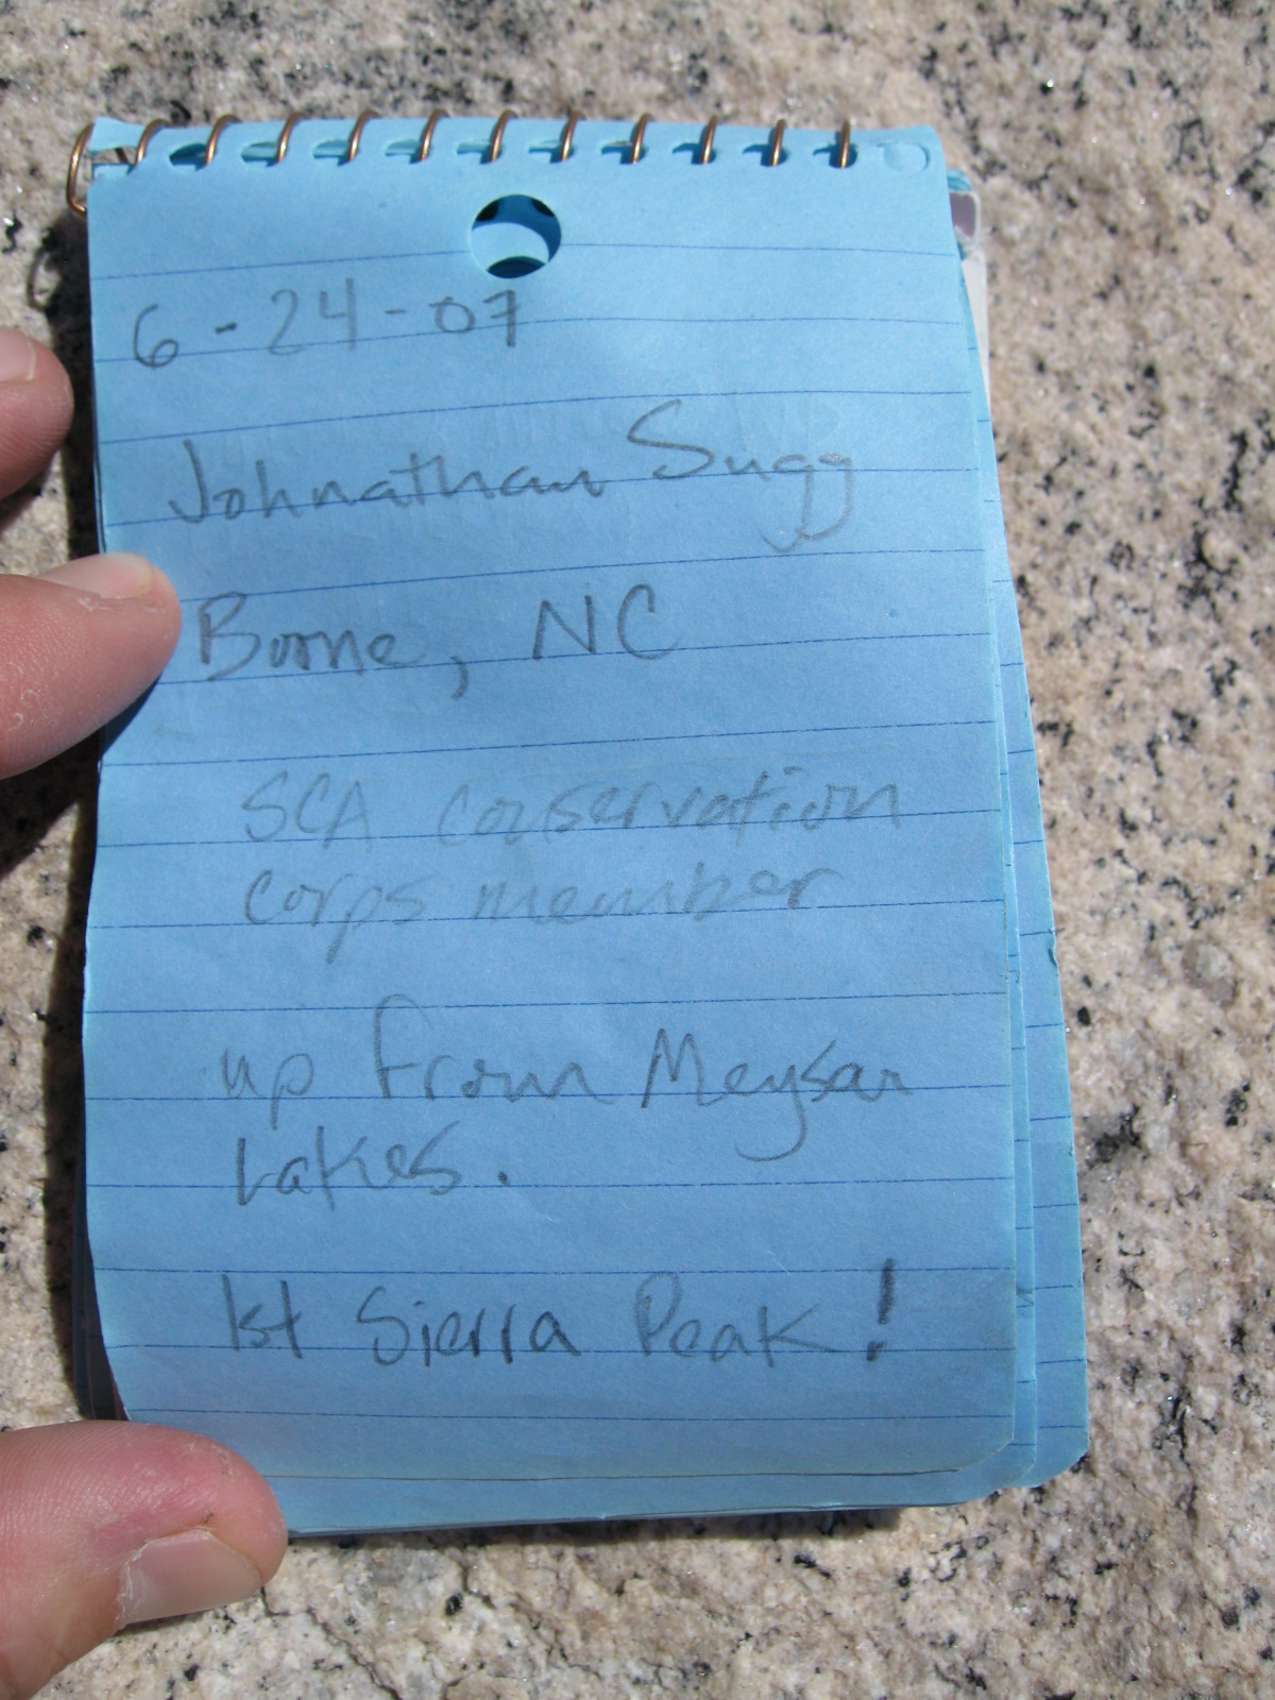 6-24-07
Johnathan Sugg
Boone, NC
SCA conservation
corps member
up from Meysan
Lakes.
1st Sierra Peak!